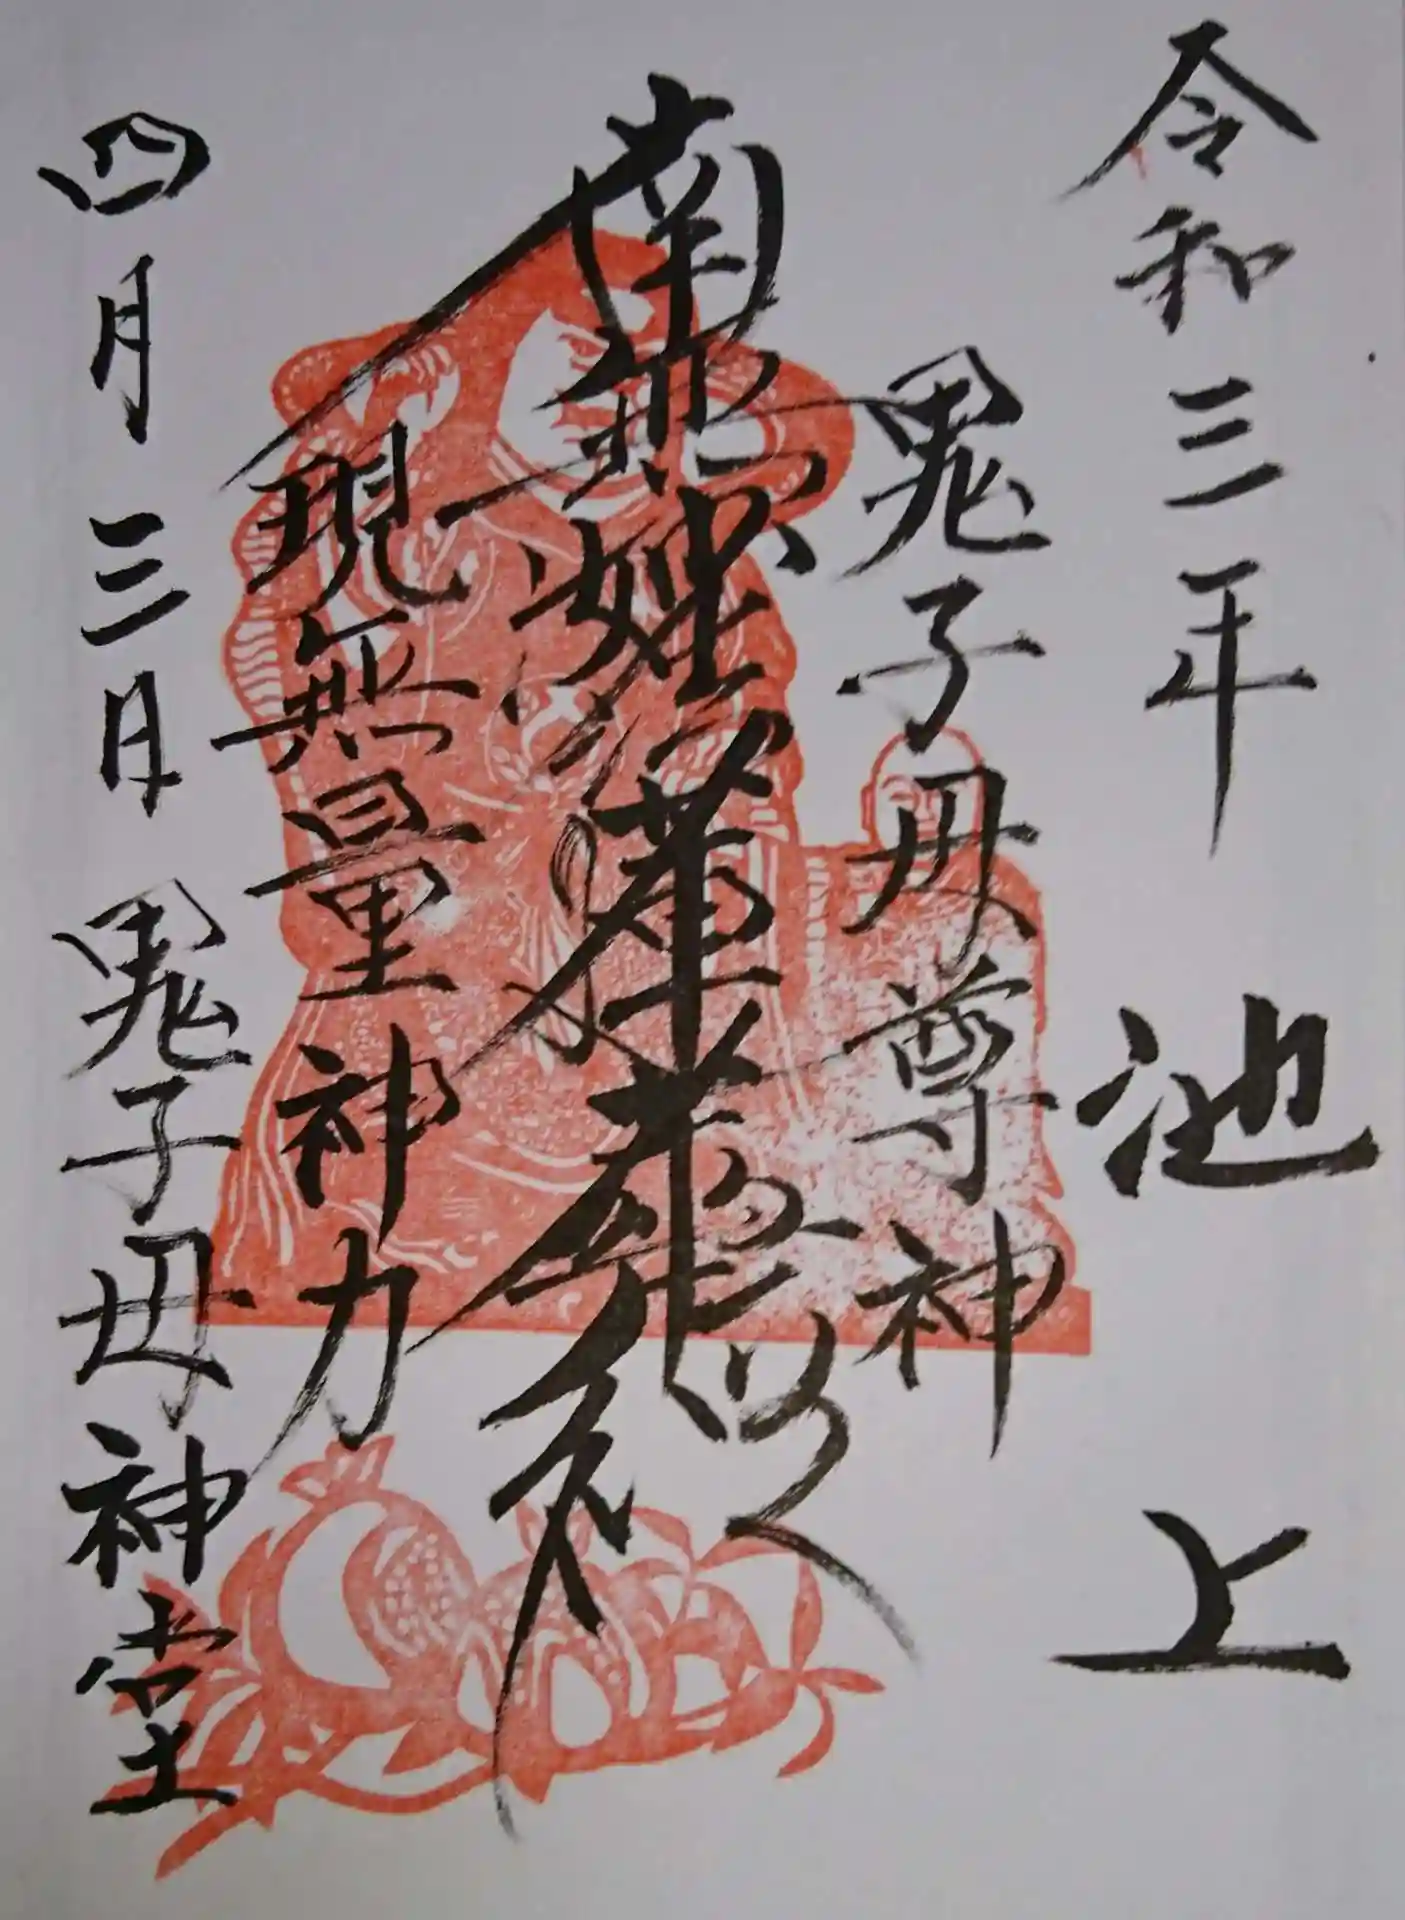 令和三年 池上
鬼子母尊神
南無妙法蓮華経
現無量神力
四月三日 鬼子母神堂